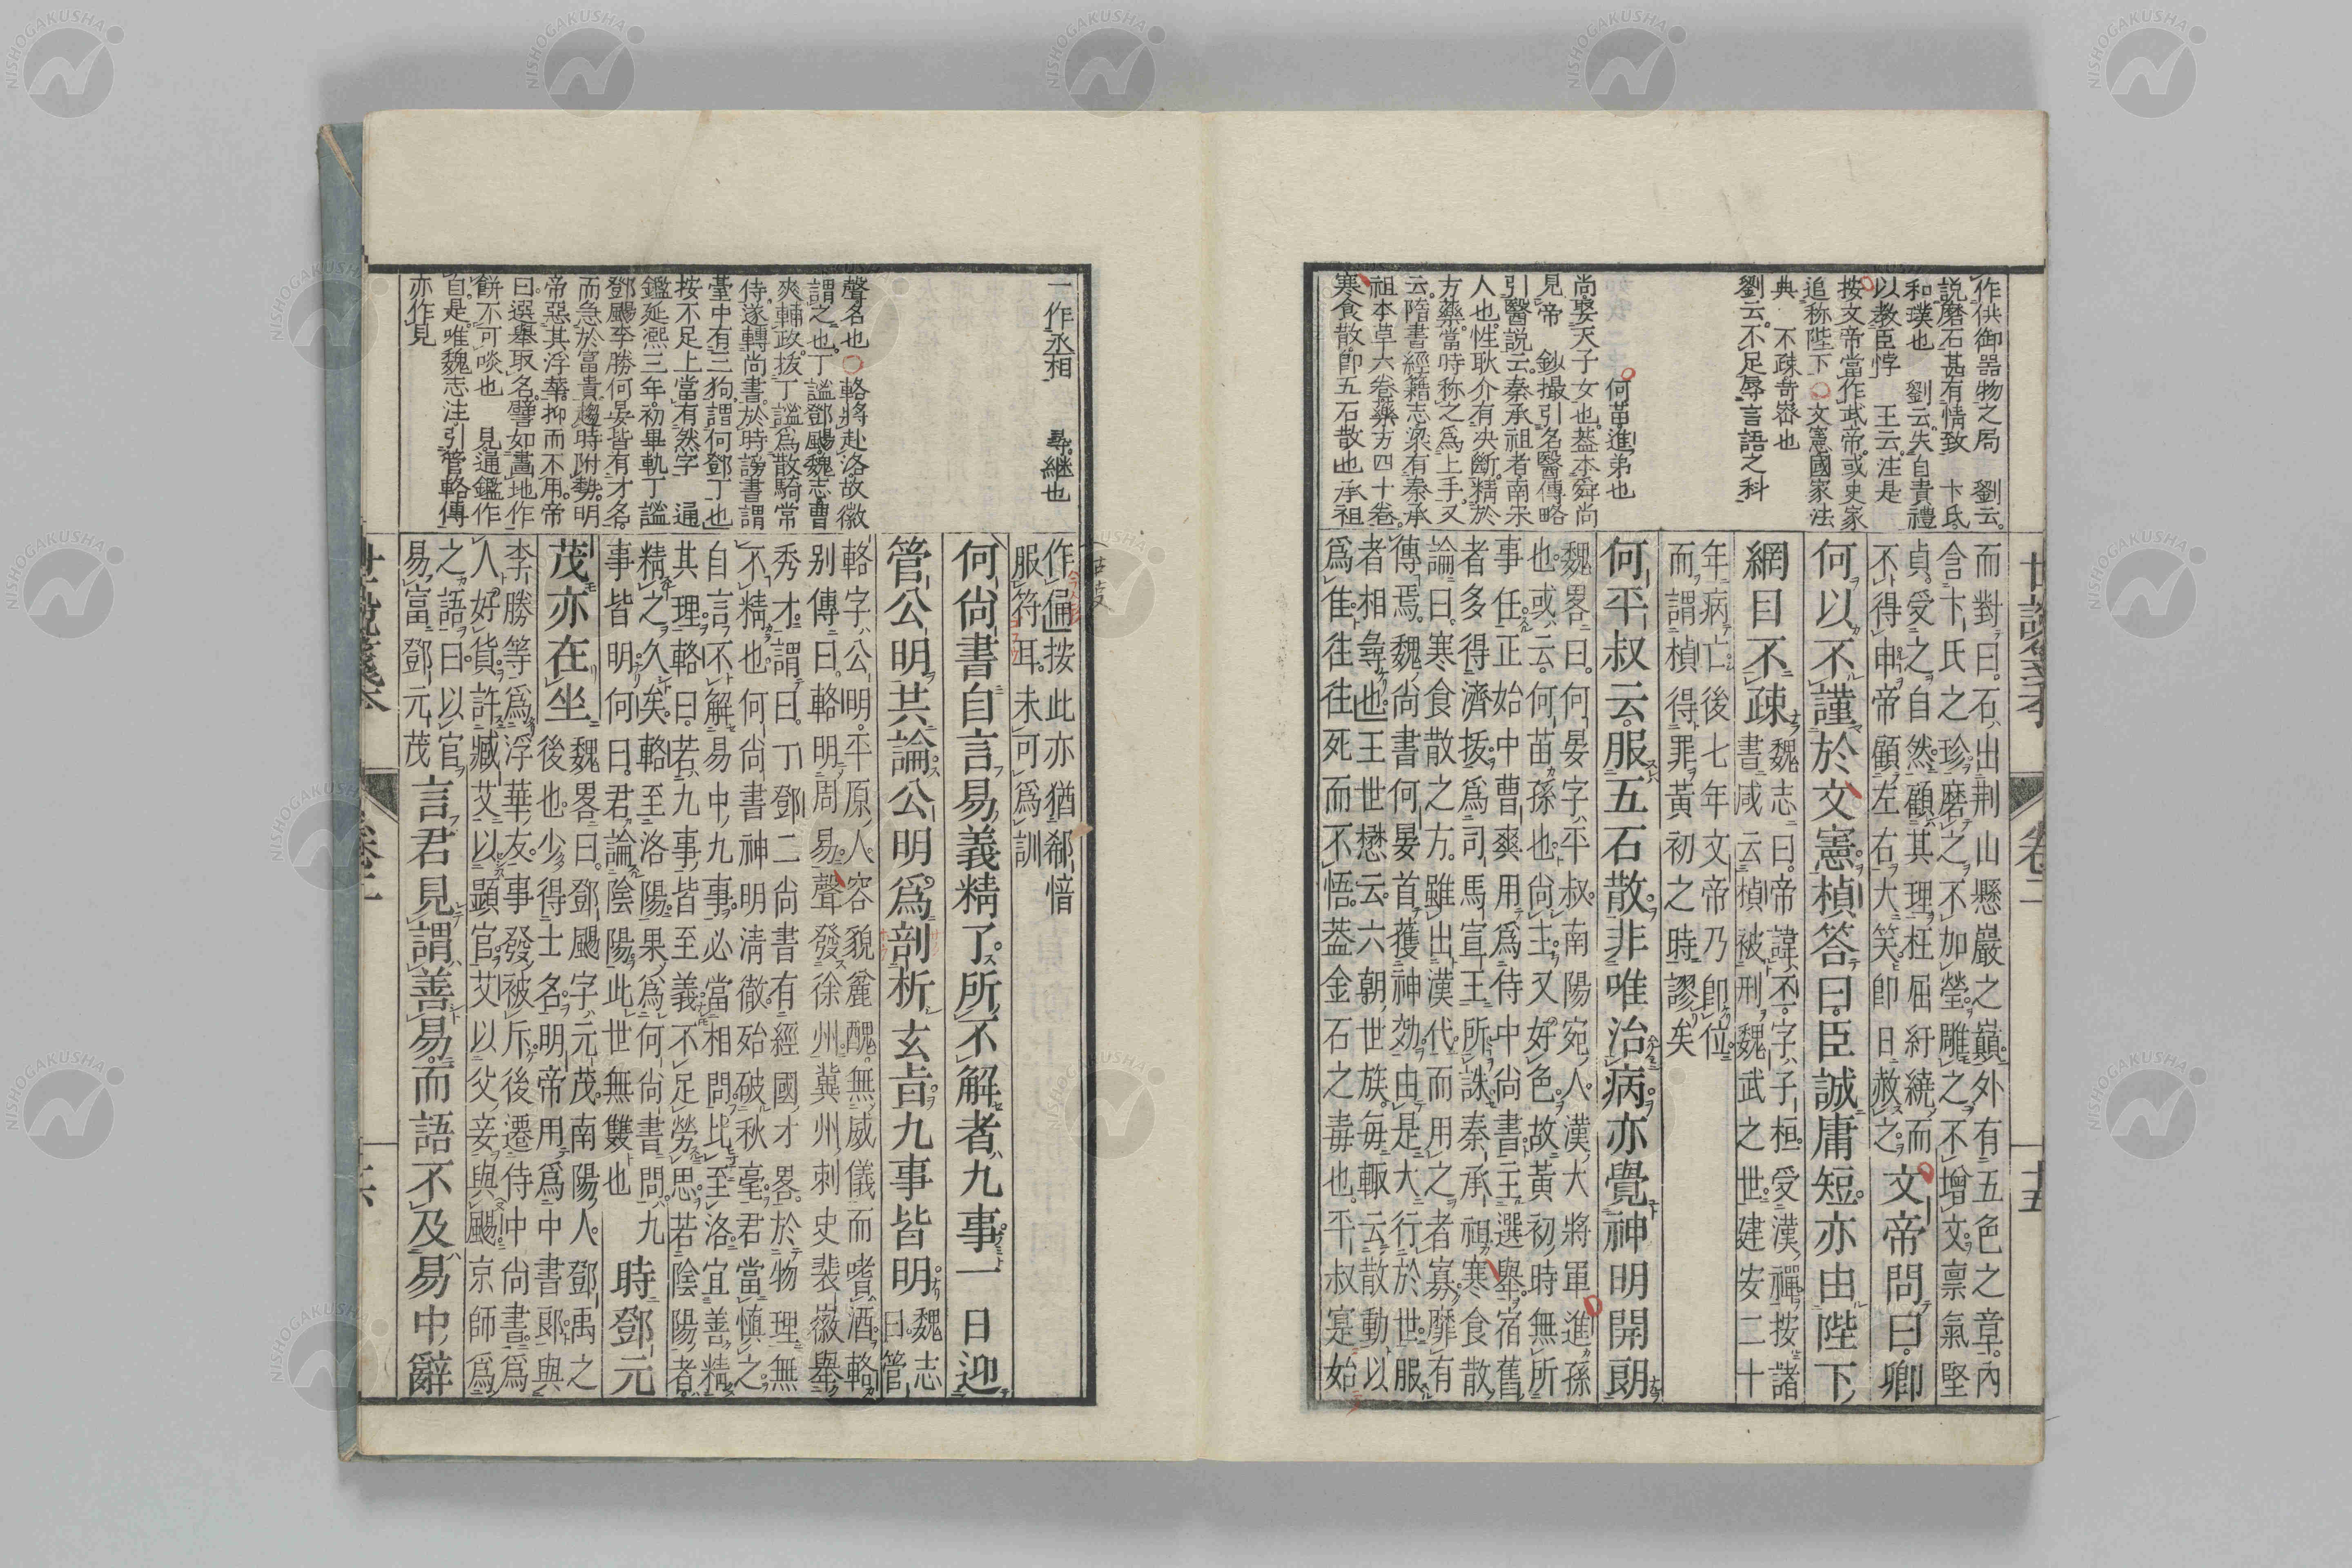 作供御器物之局 劉云
説磨石甚有情致 卞氏
和璞也 劉云失自貴禮
以教臣悖 王云注是
按文帝當作武帝或史家
追称陛下○文憲國家法
典 不疎奇也
劉云不足辱言語之科
何苗進弟也
尚娶天子女也葢本舜尚
見帝 鈔撮引名醫傳略
引醫説云秦承祖者南宋
人也性耿介有決斷精於
方藥當時称之為上手又
云隋書經籍志梁有秦承
祖本草六卷藥方四十卷
寒食散即五石散也承祖
世説箋本 卷二 十五
而對曰石出荆山懸巖之巓外有五色之章内
含卞氏之珍磨之不加瑩雕之不增文禀氣堅
貞受之自然顧其理枉屈紆繞而
不得申帝顧左右大笑即日赦之文帝問曰卿
何以不謹於文憲楨答曰臣誠庸短亦由陛下
網目不疎魏志曰帝諱丕字子桓受漢禪按諸
書咸云楨被刑魏武之世建安二十
年病亡後七年文帝乃即位
而謂楨得罪黃初之時謬矣
何平叔云服五石散非唯治病亦覺神明開朗
魏畧曰何晏字平叔南陽宛人漢大將軍進孫
也或云何苗孫也尚主又好色故黃初時無所
事任正始中曹爽用爲侍中尚書主選舉宿舊
者多得濟拔爲司馬宣王所誅秦承祖寒食散
論曰寒食散之方雖出漢代而用之者寡靡有
傳焉魏尚書何晏首獲神効由是大行於世服
者相尋也王世懋云六朝世族每輙云散動以
爲隹往往死而不悟葢金石之毒也平叔寔始
一作丞相 尋継也
聲名也○輅將赴洛故徽
謂之也丁謐鄧颺魏志曹
爽輔政拔丁謐爲散騎常
侍遂轉尚書於時謗書謂
臺中有三狗謂何鄧丁也
按不足上當有然字 通
鑑延熙三年初畢軌丁謐
鄧颺李勝何晏皆有才名
而急於富貴趨時附勢明
帝惡其浮華抑而不用帝
曰選舉取名譬如畵地作
餅不可啖也 見通鑑作
自是唯魏志注引管輅傳
亦作見
作俑按此亦猶郗愔
服符耳未可爲訓
何尚書自言易義精了所不解者九事一日迎
管公明共論公明爲剖析玄旨九事皆明魏志
曰管
輅字公明平原人容貌麄醜無威儀而嗜酒輅
別傳曰輅明周易聲發徐州冀州刺史裴徽舉
秀才謂曰丁鄧二尚書有經國才畧於物理無
不精也何尚書神明清徹殆破秋毫君當慎之
自言不解易中九事必當相問比至洛宜善精
其理輅曰若九事皆至義不足勞思若陰陽者
精之久矣輅至洛陽果爲何尚書問九
事皆明何曰君論陰陽此世無雙也時鄧元
茂亦在坐魏畧曰鄧颺字元茂南陽人鄧禹之
後也少得士名明帝用爲中書郎與
李勝等爲浮華友事發被斥後遷侍中尚書爲
人好貨許臧艾以顯官艾以父妾與颺京師爲
之語曰以官
易富鄧元茂言君見謂善易而語不及易中辭
世説箋本 卷二